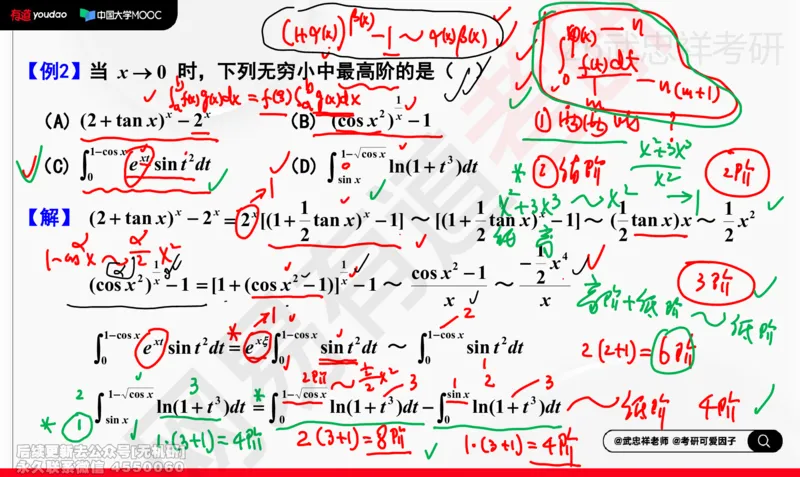 有道 youdao 中国大学MOOC
(1+α(x))^{β(x)} − 1 ~ α(x)β(x)
∫_0^{φ(x)} f(t)dt
n
m
n(m+1)
武忠祥考研
【例2】当 x → 0 时，下列无穷小中最高阶的是（ ）
∫_a^b f(x)g(x)dx = f(ξ)∫_a^b g(x)dx
(A) (2 + tan x)^x − 2^x (B) (cos x^2)^{1/x} − 1
(C) ∫_0^{1−cos x} e^{xt} sin t^2 dt (D) ∫_{sin x}^{1−√cos x} ln(1 + t^3)dt
① ② 低阶
(x^2+3x^3)/x^2 → 1
2阶
x^2+3x^3 ~ x^2
低 高
【解】 (2 + tan x)^x − 2^x = 2^x[(1 + 1/2 tan x)^x − 1] ~ [(1 + 1/2 tan x)^x − 1] ~ (1/2 tan x)x ~ 1/2 x^2
1−cos^α x ~ α/2 x^2
(cos x^2)^{1/x} − 1 = [1 + (cos x^2 − 1)]^{1/x} − 1 ~ (cos x^2 − 1)/x ~ (−1/2 x^4)/x
3阶
高阶+低阶 ~ 低阶
∫_0^{1−cos x} e^{xt} sin t^2 dt = e^{xξ} ∫_0^{1−cos x} sin t^2 dt ~ ∫_0^{1−cos x} sin t^2 dt
2(2+1) = 6阶
2阶 ~ 1/2 x^2
∫_{sin x}^{1−√cos x} ln(1 + t^3)dt = ∫_0^{1−√cos x} ln(1 + t^3)dt − ∫_0^{sin x} ln(1 + t^3)dt
~ 低阶 4阶
1·(3+1) = 4阶 2(3+1) = 8阶 1·(3+1) = 4阶
@武忠祥老师 @考研可爱因子
后续更新去公众号[无机斩]
永久联系微信 4550060